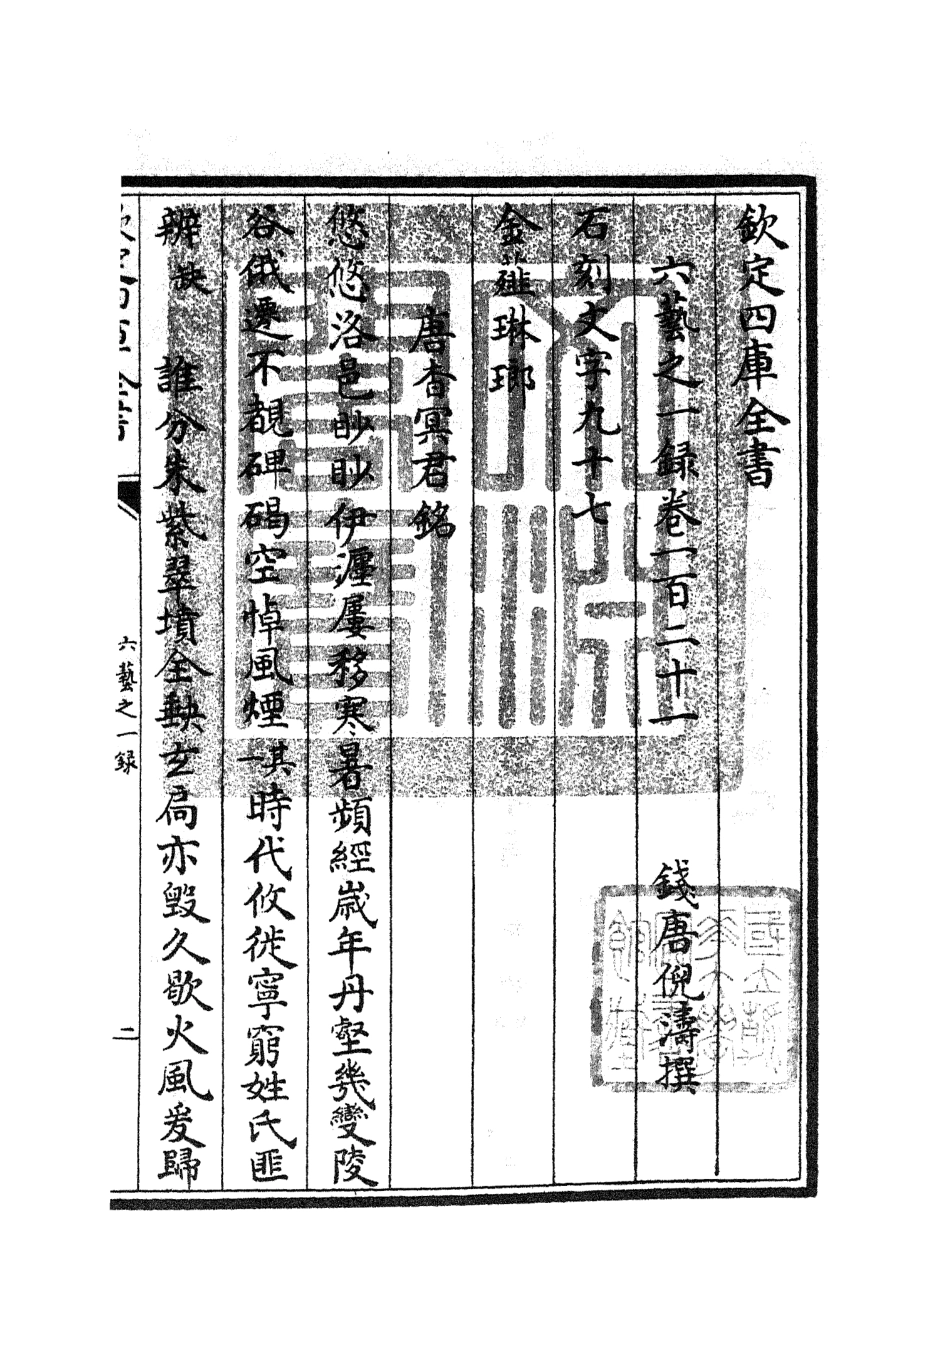 欽定四庫全書
六藝之一録卷一百二十一
錢唐倪濤撰
石刻文字九十七
金薤琳瑯
唐杳冥君銘
悠悠洛邑眇眇伊瀍屢移寒暑頻經歳年丹壑幾變陵
谷俄遷不覩碑碣空悼風煙其一時代攸徙寧窮姓氏匪
辨缺誰分朱紫翠墳全缺玄扃亦毁久歇火風爰歸
六藝之一録
二